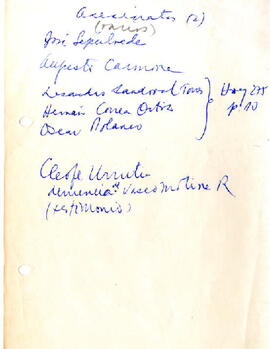 Asesinatos (2)
(varios)
José Sepúlveda
Augusto Carmona
Lisandro Sandoval Torres
Hernán Correa Ortiz
Oscar Polanco
Hoy 275
p 10
Cleofe Urrutia
denuncia a Vasco Molina R
(testimonio)